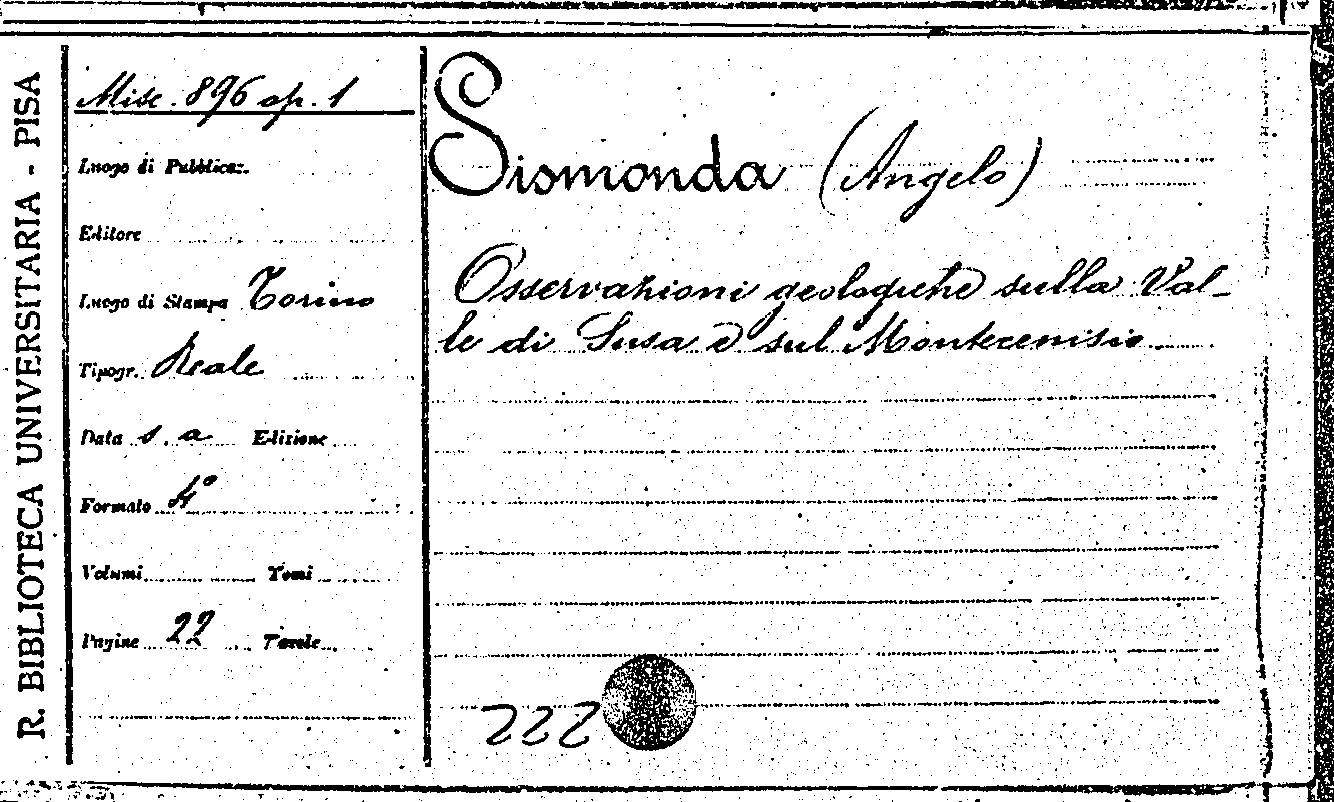 R. BIBLIOTECA UNIVERSITARIA - PISA
Misc. 896 op. 1
Luogo di Pubblicaz.
Editore
Luogo di Stampa Torino
Tipogr. Reale
Data s. a Edizione
Formato 4°
Volumi Tomi
Pagine 22 Tavole
Sismonda (Angelo)
Osservazioni geologiche sulla Val-
le di Susa e sul Montecenisio
222